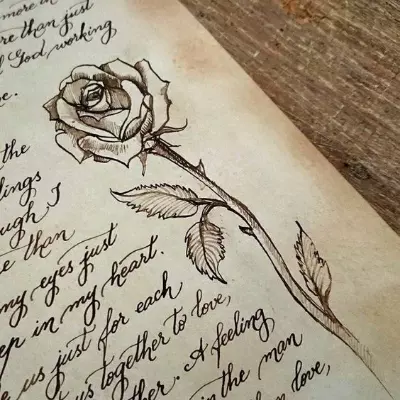 more in
re than just
God working
e.
the
lings
ough I
e than
my eyes just
ep in my heart.
e us just for each
us together to love,
ther. A feeling
in the man
love,